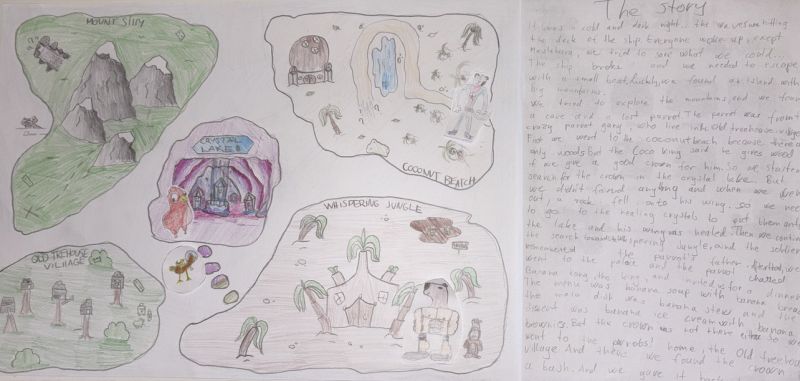 MOUNT SILLY
CRYSTAL
LAKE
COCONUT BEACH
WHISPERING JUNGLE
OLD TREHOUSE
VILLAGE
The story
It was a cold and dark night... the waves were hitting
the deck of the ship. Everyone woke up, except
we tried to save what we could...
The ship broke and we needed to escape
with a small boat, luckily, we found an island with
big mountains.
We tried to explore the mountains, and we found
a cave and a lost parrot. The parrot was from
crazy parrot gang, who live in Old treehouse village
First we went to the coconut beach because there
only woods. But the Coco king said he gives wood
if we give a good crown for him. So we started
search for the crown in the crystal lake. But
we didn't found anything and when we
out, a rock fell onto his wing. So we need
to go to the healing crystals to put them
the lake and his wing was healed. Then we continue
the search towards whispering jungle, and the soldier
remembered the parrot's father. Afterthat, we
went to the palace and the parrot chatted
Banana Kong, the king, and invited us for a dinner
The menu was banana soup with banana bread
The main dish was banana stew and the
desert was banana ice cream with banana
brownies. But the crown was not there either so we
went to the parrots' home, the Old treehouse
village. And there we found the crown
a bush. And we gave it